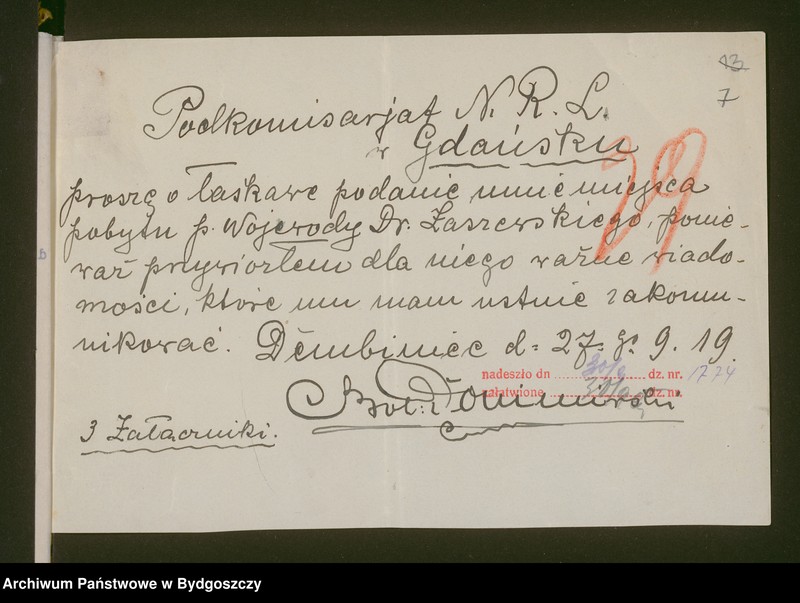 13
7
Podkomisarjat N. R. L.
w Gdańsku
29
proszę o łaskawe podanie mnie miejsca
pobytu p. Wojewody Dr. Łaszewskiego, ponie-
waż przywiozłem dla niego ważne wiado-
mości, które mu mam ustnie zakomu-
nikować. Dembiniec d= 27. 9. 19.
nadeszło dn ... 30/9 ... dz. nr. 1774
załatwione ... dz. nr.
Donimirski
3 Załączniki.
Archiwum Państwowe w Bydgoszczy